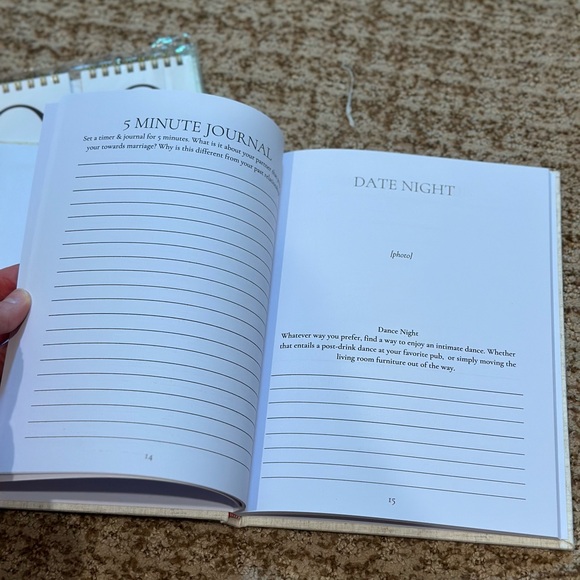 5 MINUTE JOURNAL
Set a timer & journal for 5 minutes. What is it about your partner
your towards marriage? Why is this different from your past
14
DATE NIGHT
[photo]
Dance Night
Whatever way you prefer, find a way to enjoy an intimate dance. Whether
that entails a post-drink dance at your favorite pub, or simply moving the
living room furniture out of the way.
15